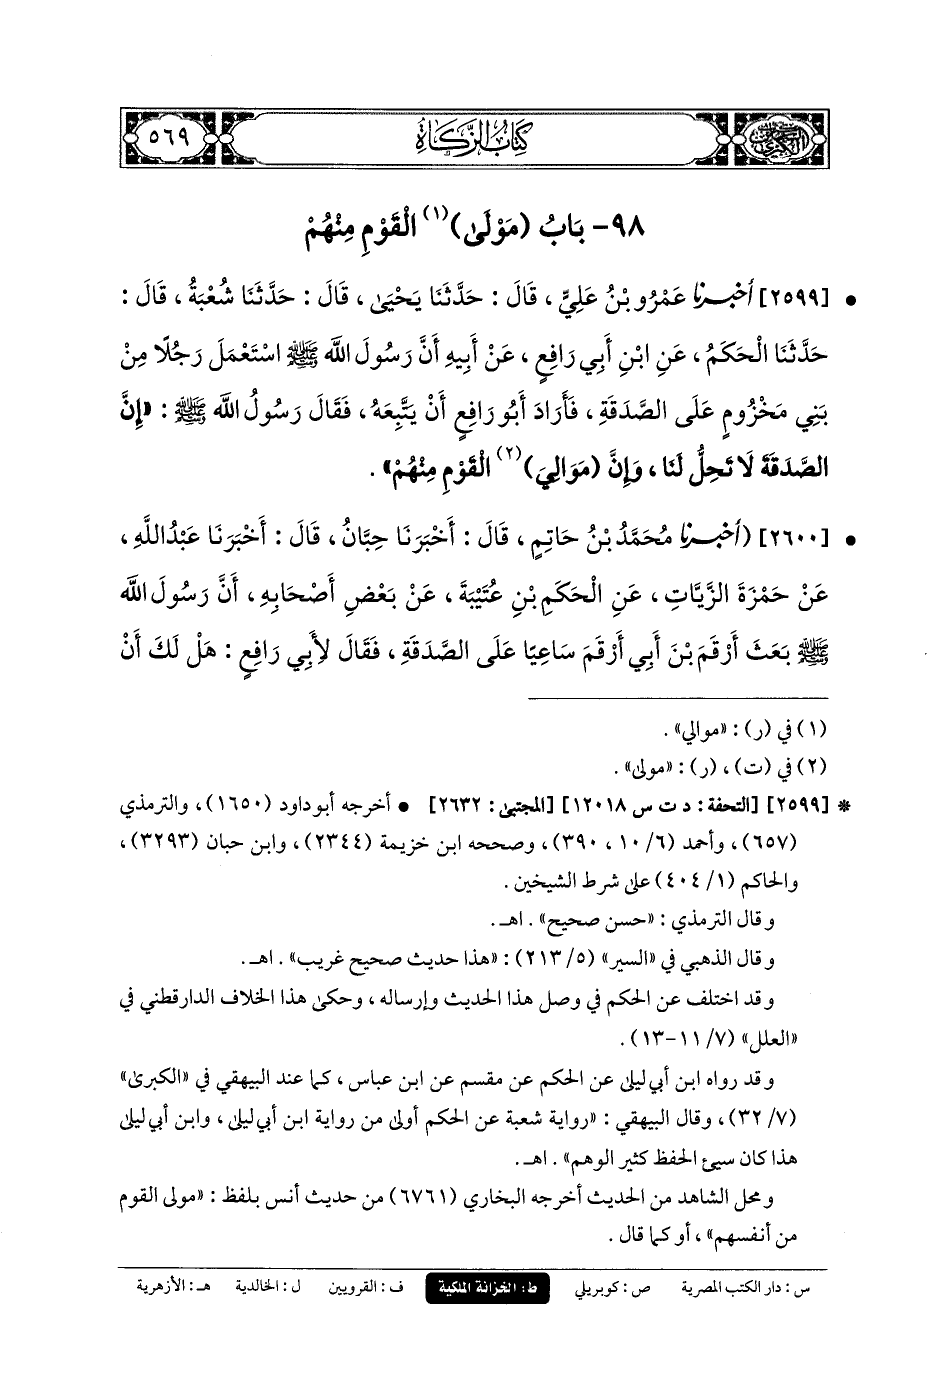 كتاب الزكاة
٥٦٩
٩٨- بَابُ (مَوْلَى)(١) الْقَوْمِ مِنْهُمْ
• [٢٥٩٩] أخبرنا عَمْرُو بْنُ عَلِيٍّ، قَالَ: حَدَّثَنَا يَحْيَى، قَالَ: حَدَّثَنَا شُعْبَةُ، قَالَ:
حَدَّثَنَا الْحَكَمُ، عَنِ ابْنِ أَبِي رَافِعٍ، عَنْ أَبِيهِ أَنَّ رَسُولَ اللَّه ﷺ اسْتَعْمَلَ رَجُلًا مِنْ
بَنِي مَخْزُومٍ عَلَى الصَّدَقَةِ، فَأَرَادَ أَبُو رَافِعٍ أَنْ يَتَّبِعَهُ، فَقَالَ رَسُولُ اللَّه ﷺ: «إِنَّ
الصَّدَقَةَ لَا تَحِلُّ لَنَا، وَإِنَّ (مَوَالِيَ)(٢) الْقَوْمِ مِنْهُمْ».
• [٢٦٠٠] (أخبرنا مُحَمَّدُ بْنُ حَاتِمٍ، قَالَ: أَخْبَرَنَا حِبَّانُ، قَالَ: أَخْبَرَنَا عَبْدُ اللَّهِ،
عَنْ حَمْزَةَ الزَّيَّاتِ، عَنِ الْحَكَمِ بْنِ عُتَيْبَةَ، عَنْ بَعْضِ أَصْحَابِهِ، أَنَّ رَسُولَ اللَّه
ﷺ بَعَثَ أَرْقَمَ بْنَ أَبِي أَرْقَمَ سَاعِيًا عَلَى الصَّدَقَةِ، فَقَالَ لِأَبِي رَافِعٍ: هَلْ لَكَ أَنْ
(١) في (ر): «موالي».
(٢) في (ت)، (ر): «مولى».
* [٢٥٩٩] [التحفة: د ت س ١٢٠١٨] [المجتبى: ٢٦٣٢] • أخرجه أبو داود (١٦٥٠)، والترمذي
(٦٥٧)، وأحمد (٦/ ١٠، ٣٩٠)، وصححه ابن خزيمة (٢٣٤٤)، وابن حبان (٣٢٩٣)،
والحاكم (١/ ٤٠٤) على شرط الشيخين.
وقال الترمذي: «حسن صحيح». اهـ.
وقال الذهبي في «السير» (٥/ ٢١٣): «هذا حديث صحيح غريب». اهـ.
وقد اختلف عن الحكم في وصل هذا الحديث وإرساله، وحكى هذا الخلاف الدارقطني في
«العلل» (٧/ ١١-١٣).
وقد رواه ابن أبي ليلى عن الحكم عن مقسم عن ابن عباس، كما عند البيهقي في «الكبرى»
(٧/ ٣٢)، وقال البيهقي: «رواية شعبة عن الحكم أولى من رواية ابن أبي ليلى، وابن أبي ليلى
هذا كان سيئ الحفظ كثير الوهم». اهـ.
ومحل الشاهد من الحديث أخرجه البخاري (٦٧٦١) من حديث أنس بلفظ: «مولى القوم
من أنفسهم»، أو كما قال.
س: دار الكتب المصرية ص: كوبريلي ط: الخزانة الملكية ف: القرويين ل: الخالدية هـ: الأزهرية